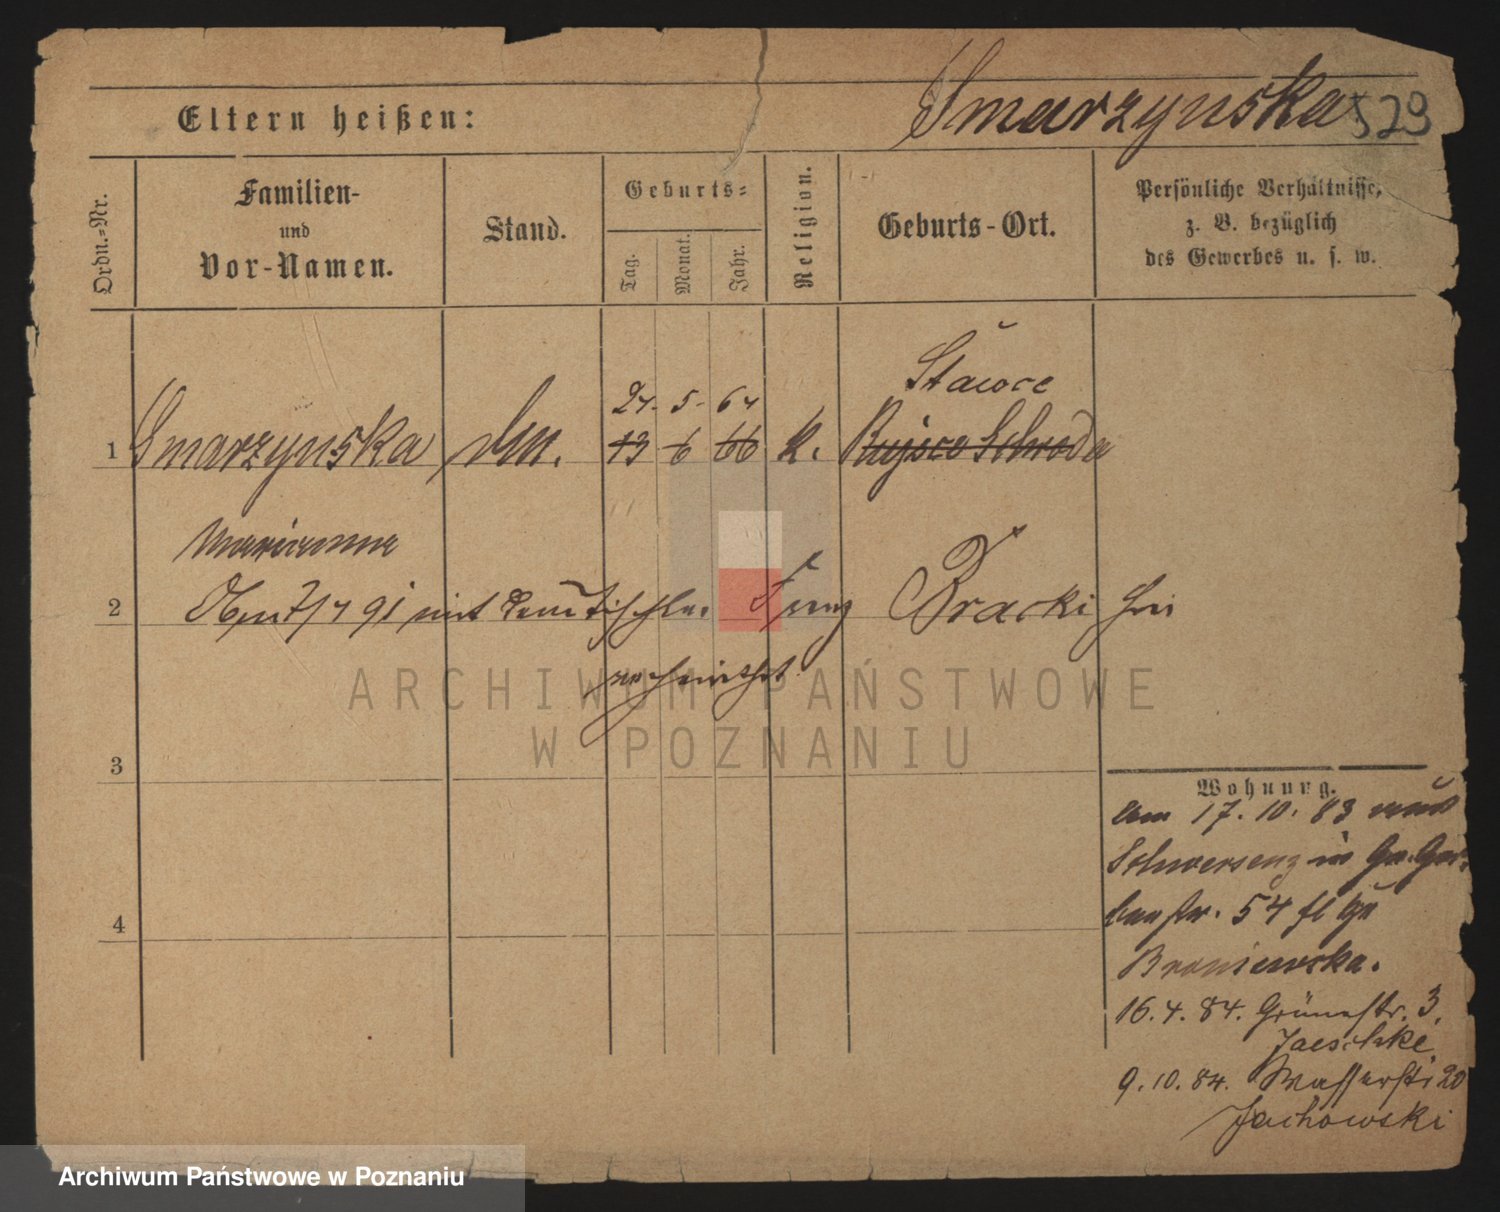 Eltern heißen:
Smarzynska 529
Ordn.=Nr.
Familien-
und
Vor-Namen.
Stand.
Geburts=
Tag.
Monat.
Jahr.
Religion.
Geburts-Ort.
Persönliche Verhältnisse,
z. B. bezüglich
des Gewerbes u. s. w.
Stawce
24. 5. 64
1 Smarzynska 13 6 66 k. Schroda
Marianna
2 91 mit dem Tischler Bracki hier
verheirathet
ARCHIWUM PAŃSTWOWE
W POZNANIU
3
4
Wohnung.
Am 17. 10. 83 von
Schwersenz in Gr. Ger-
berstr. 54
Broniewska.
16. 4. 84. Grünestr. 3.
Jaeschke
9. 10. 84. Wasserstr 20
Jachowski
Archiwum Państwowe w Poznaniu